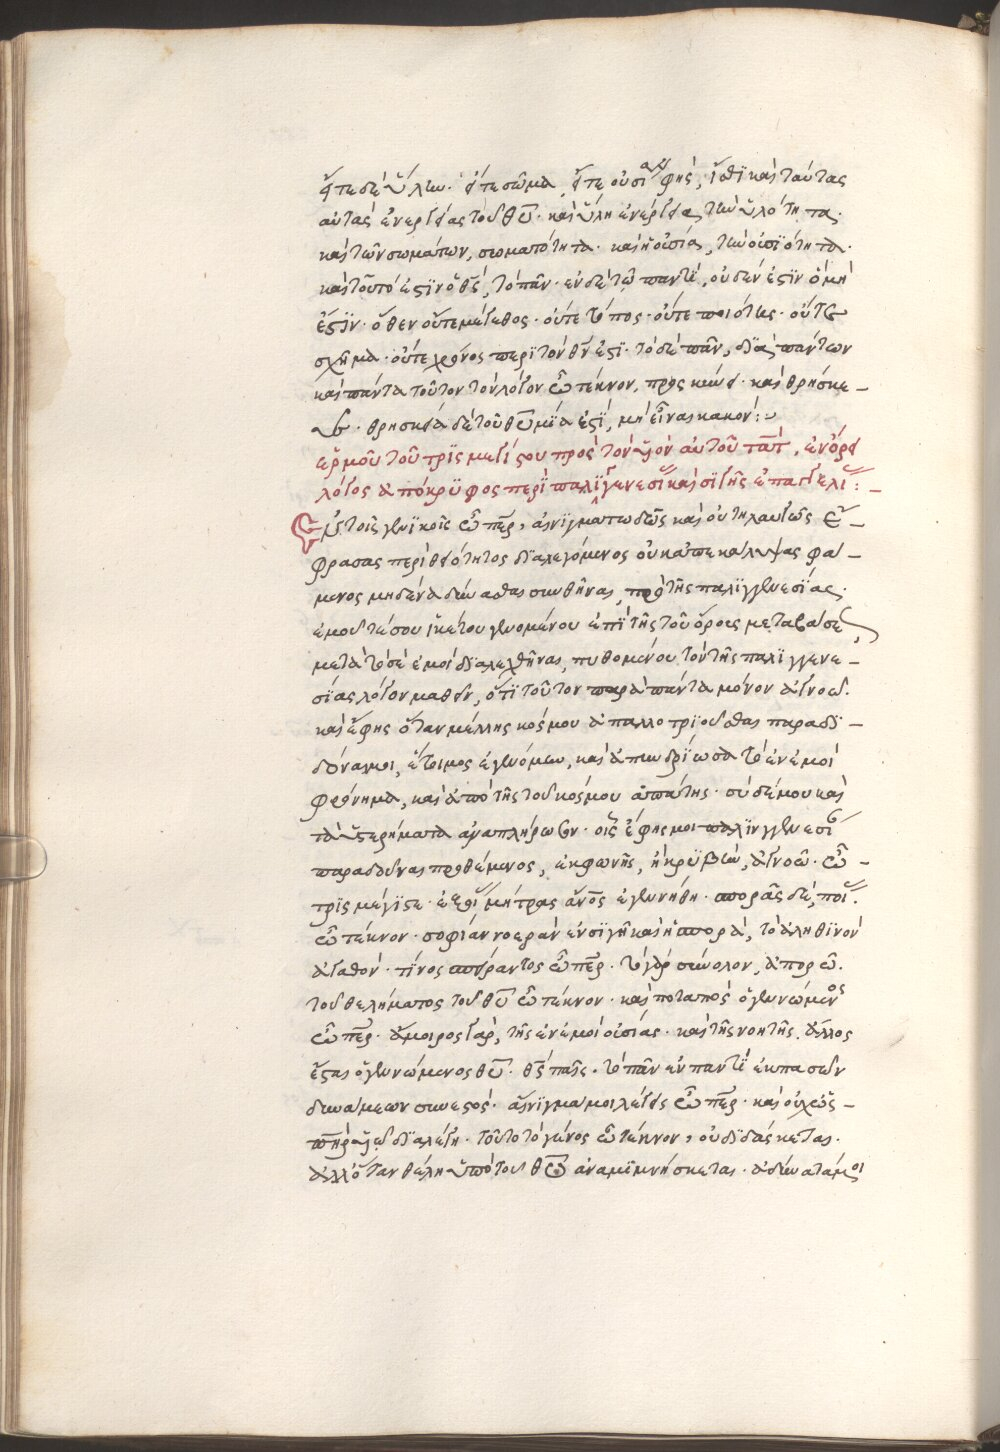 εἴτε δὲ ὕλην· εἴτε σῶμα, εἴτε οὐσίαν φῄς, ἴσθι καὶ ταύτας
αὐτὰς ἐνεργείας τοῦ θυ· καὶ ὕλη ἐνέργειαν, τὴν ὑλότητα·
καὶ τῶν σωμάτων, σωματότητα· καὶ ἡ οὐσία, τὴν οὐσϊότητα·
καὶ τοῦτό ἐστϊν ὁ θς, τὸ πᾶν· ἐν δὲ τῷ παντὶ, οὐδέν ἐστϊν ὃ μὴ
ἔστϊν· ὅθεν οὔτε μέγεθος· οὔτε τόπος· οὔτε ποιότης· οὔτε
σχῆμα· οὔτε χρόνος περὶ τὸν θν ἐστϊ· τὸ δὲ πᾶν, διὰ πάντων
καὶ πάντα τοῦτον τὸν λόγον ὦ τέκνον, προσκύνει· καὶ θρήσκε–
υε· θρησκεία δὲ τοῦ θυ μία ἐστϊ, μὴ εἶναι κακόν:
ἑρμοῦ τοῦ τρϊσμεγίστου πρὸς τὸν υἱὸν αὐτοῦ τὰτ, ἐν ὄρει
λόγος ἀπόκρϋφος περὶ παλϊγγενεσίας καὶ σϊγῆς ἐπαγγελίας:–
Ἐν τοῖς γενϊκοῖς ὦ περ, αἰνϊγματωδῶς καὶ οὐ τηλαυγῶς ἔ–
φρασας περὶ θειότητος διαλεγόμενος οὐκ ἀπεκάλυψας φά–
μενος μηδένα δύνασθαι σωθῆναι, πρὸ τῆς παλϊγγενεσίας·
ἐμοῦ τέ σου ἱκέτου γενομένου ἐπὶ τῆς τοῦ ὄρους μεταβάσεως,
μετὰ τὸ σὲ ἐμοὶ διαλεχθῆναι, πυθομένου τὸν τῆς παλϊγγενε–
σίας λόγον μαθεῖν, ὅτϊ τοῦτον παρὰ πάντα μόνον ἀγνοῶ·
καὶ ἔφης ὅταν μέλλῃς κόσμου ἀπαλλοτριοῦσθαι παραδϊ–
δόναι μοι, ἕτοιμος ἐγενόμην, καὶ ἀπηνδρίωσα τὸ ἐν ἐμοὶ
φρόνημα, καὶ ἀπὸ τῆς τοῦ κόσμου ἀπάτης· σὺ δέ μου καὶ
τὰ ὑστερήματα ἀναπλήρωσον· οἷς ἔφης μοι παλϊνγγενεσίας
παραδοῦναι προθέμενος, ἐκφωνῆς, ἢ κρϋβήν, ἀγνοῶ· ὦ –
τρϊσμέγϊστε· ἐξ οἵας μήτρας ἀνος ἐγεννήθη· σπορᾶς δὲ, ποίας·
ὦ τέκνον· σοφίαν νοερὰν ἐν σϊγῇ καὶ ἡ σπορὰ, τὸ ἀληθϊνὸν
ἀγαθόν· τίνος σπείραντος ὦ περ· τὸ γὰρ σύνολον, ἀπορῶ.
τοῦ θελήματος τοῦ θυ ὦ τέκνον· καὶ ποταπὸς ὁ γεννώμενος
ὦ περ· ἄμοιρος γὰρ, τῆς ἐν ἐμοὶ οὐσίας· καὶ τῆς νοητῆς. ἄλλος
ἔσται ὁ γεννώμενος θυ· θς παῖς· τὸ πᾶν ἐν παντὶ ἐκ πασῶν
δυνάμεων συνεστός· αἴνϊγμά μοι λέγεις ὦ περ· καὶ οὐχ ὡς –
πηρ υἱῷ διαλέγῃ· τοῦτο τὸ γένος ὦ τέκνον, οὐ διδάσκεται·
ἀλλ' ὅταν θέλῃ ὑπὸ τοῦ θυ ἀναμϊμνήσκεται· ἀδύνατά μοι